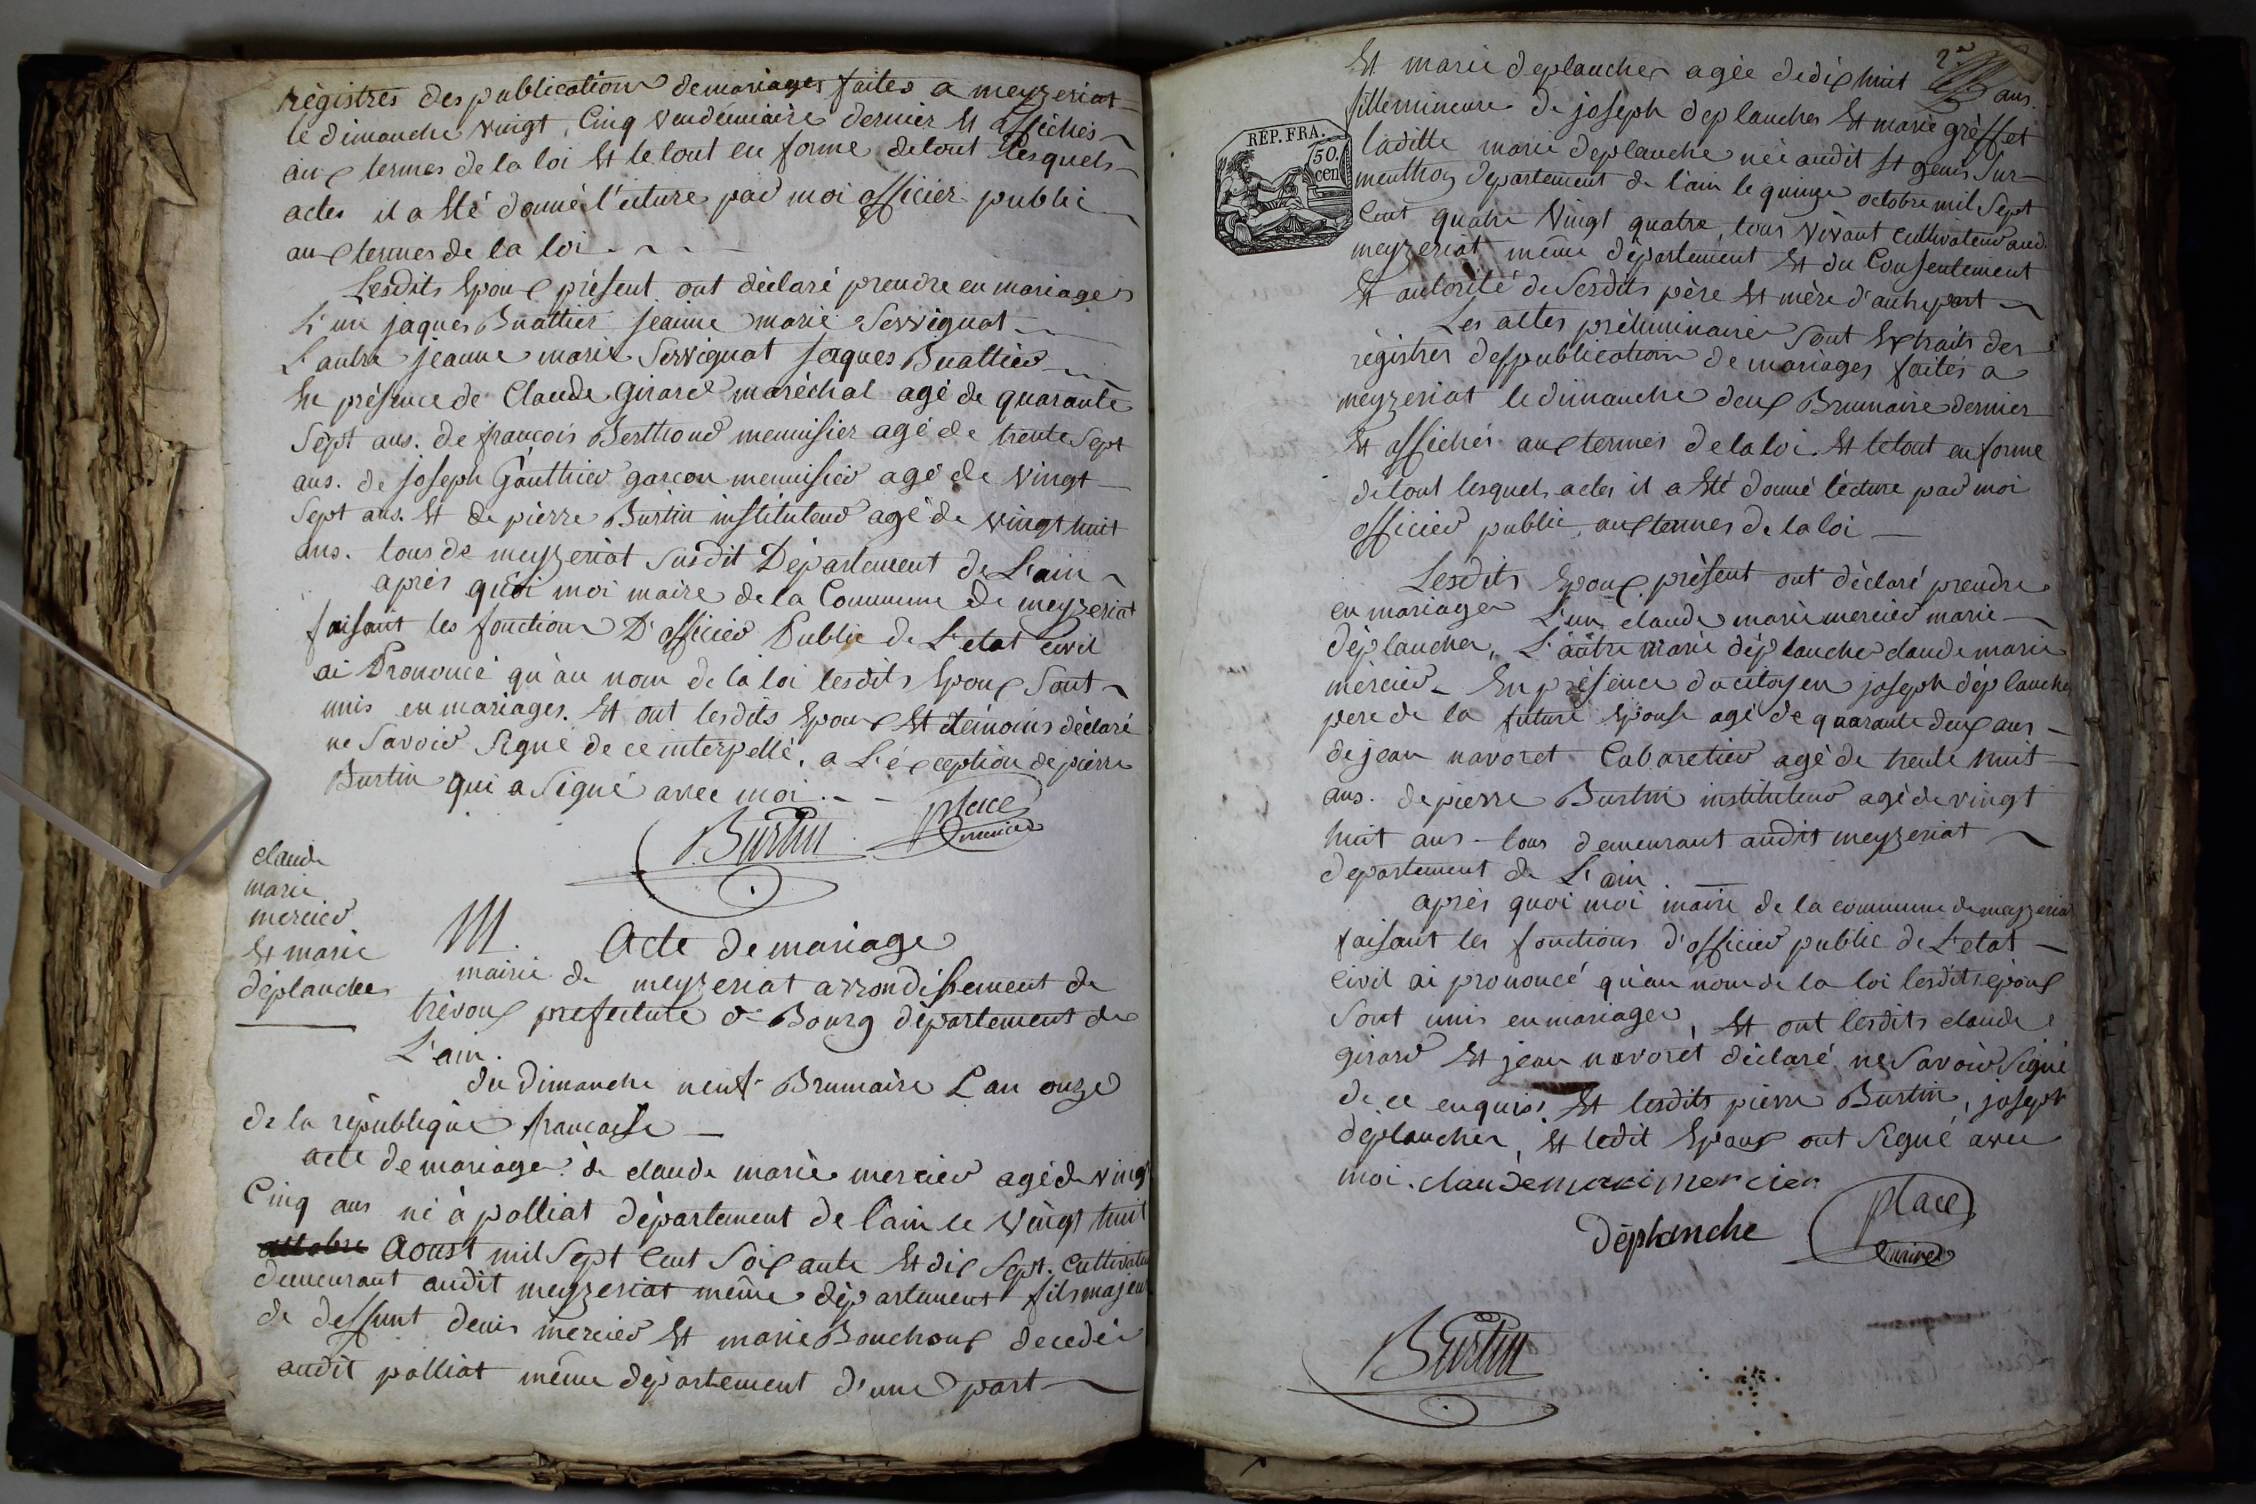 règistres des publications de mariages faites a meyzeriat
le dimanche vingt, Cinq Vendémiaire dernier Et affichés
aux termes de la loi Et le tout en forme de tout lesquels
actes il a Eté donné l'ecture par moi officier public
aux termes de la loi
Lesdits Epoux présent ont déclaré prendre en mariage
L'un jaques Buattier jeanne marie Servignat
L'autre jeanne marie Servignat jaques Buattier
En présence de Claude Girard maréchal agé de quarante
Sept ans. de françois Berthoud menuisier agé de trente Sept
ans. de joseph Gauthier garcon menuisier agé de vingt
Sept ans. Et de pierre Burtin instituteur agé de vingt huit
ans. tous de meyzeriat susdit Département de L'ain
aprés quoi moi maire de la Commune de meyzeriat
faisant les fonctions D'officier Public de L'etat civil
ai Prononcé qu'au nom de la loi lesdits Epoux Sont
unis en mariages. Et ont lesdits Epoux Et témoins déclaré
ne Savoir Signé de ce interpellé, a L'éxception de pierre
Burtin qui a Signé avec moi
Burtin
place
maire
claude
marie
mercier
Et marie
déplanches
M.
Acte de mariage
mairie de meyzeriat arrondissement de
trévoux prefecture de Bourg département de
L'ain.
du dimanche neuf Brumaire L'an onze
de la république francaise
acte de mariage de claude marie mercier agé de vingt
Cinq ans né à polliat département de l'ain le vingt huit
octobre Aoust mil Sept Cent Soixante Et dix Sept. Cultivateur
demeurant audit meyzeriat même département fils majeur
de deffunt denis mercier Et marie Bouchoux decedés
audit polliat même département d'une part
2e
Et marie deplanches agée de dix huit ans.
fille mineure de joseph deplanches Et marie gréffet
laditte marie deplanche née audit St genis Sur
menthon département de l'ain le quinze octobre mil Sept
Cent quatre Vingt quatre, tous vivant cultivateur aud.
meyzeriat même département Et du Consentement
Et autorité de Sesdits père Et mère d'autre part
REP. FRA.
50.
cen
Les actes préliminaires Sont Extraits des
règistres des publications de mariages faites a
meyzeriat le dimanche deux Brumaire dernier
Et affichés aux termes de la loi. Et le tout en forme
de tout lesquels actes il a Eté donné lécture par moi
officier public aux termes de la loi
Lesdits Epoux présent ont déclaré prendre
en mariage L'un claude marie mercier marie
déplanches, L'autre marie déplanche claude marie
mércier. En présence du citoyen joseph déplanches
pere de la future Epouse agé de quarante deux ans
de jean navoret Cabaretier agé de trente huit
ans. de pierre Burtin instituteur agé de vingt
huit ans tous demeurant audit meyzeriat
département de L'ain.
après quoi moi maire de la commune de meyzeriat
faisant les fonctions d'officier public de L'etat
civil ai prononcé qu'au nom de la loi lesdits époux
Sont unis en mariage, Et ont lesdits claude
girard Et jean navorét déclaré ne Savoir Signé
de ce enquis. Et lesdits pierre Burtin, joseph
déplanches, Et ledit Epoux ont Signé avec
moi. claude marie mercier
déplanche
place
maire
Burtin